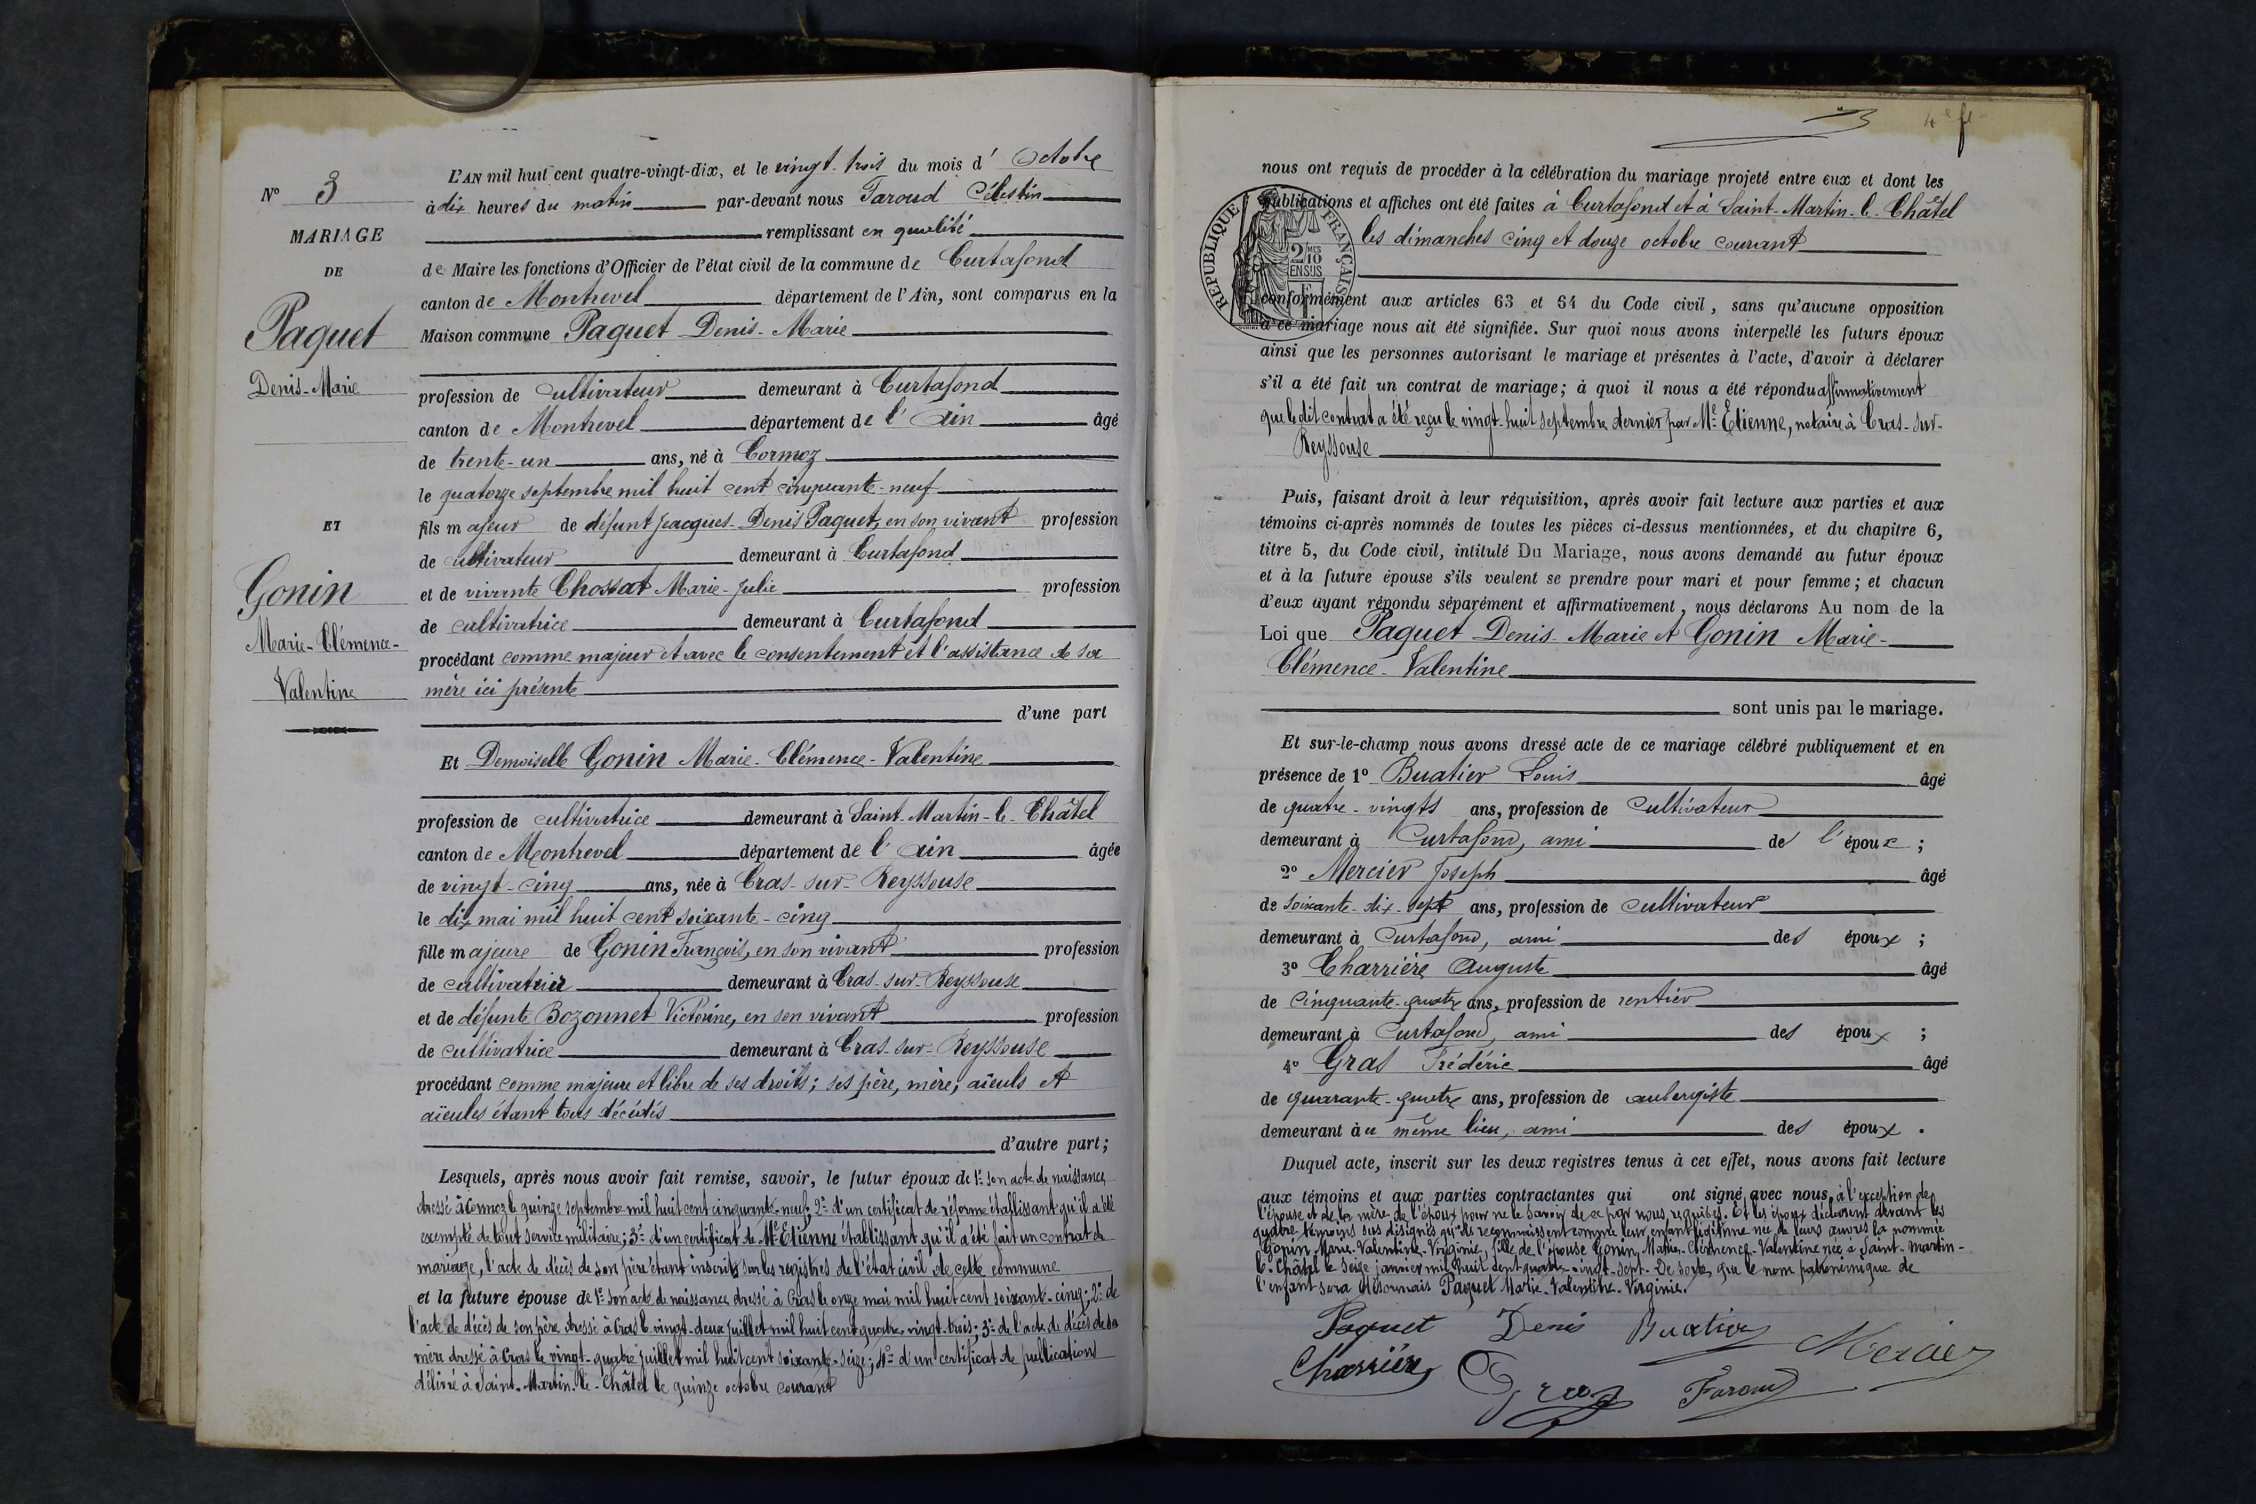 N° 3
MARIAGE
DE
Paquet
Denis-Marie
ET
Gonin
Marie-Clémence-
Valentine
L'AN mil huit cent quatre-vingt-dix, et le vingt-trois du mois d' Octobre
à dix heures du matin par-devant nous Faroud Célestin
remplissant en qualité
de Maire les fonctions d'Officier de l'état civil de la commune de Curtafond
canton de Montrevel département de l'Ain, sont comparus en la
Maison commune Paquet Denis-Marie
profession de cultivateur demeurant à Curtafond
canton de Montrevel département de l'Ain âgé
de trente-un ans, né à Cormoz
le quatorze septembre mil huit cent cinquante-neuf
fils majeur de défunt Jeacques-Denis Paquet, en son vivant profession
de cultivateur demeurant à Curtafond
et de vivante Chossat Marie-Julie profession
de cultivatrice demeurant à Curtafond
procédant comme majeur et avec le consentement et l'assistance de sa
mère ici présente
d'une part
Et Demoiselle Gonin Marie-Clémence-Valentine
profession de cultivatrice demeurant à Saint-Martin-le-Châtel
canton de Montrevel département de l'Ain âgée
de vingt-cinq ans, née à Cras-sur-Reyssouse
le dix mai mil huit cent soixante-cinq
fille majeure de Gonin François, en son vivant profession
de cultivateur demeurant à Cras-sur-Reyssouse
et de défunte Bozonnet Victorine, en son vivant profession
de cultivatrice demeurant à Cras-sur-Reyssouse
procédant comme majeure et libre de ses droits; ses père, mère, aïeuls et
aïeules étant tous décédés
d'autre part;
Lesquels, après nous avoir fait remise, savoir, le futur époux de 1° son acte de naissance
dressé à Cormoz le quinze septembre mil huit cent cinquante-neuf; 2° d'un certificat de réforme établissant qu'il a été
exempté de tout service militaire; 3° d'un certificat de Me Etienne établissant qu'il a été fait un contrat de
mariage, l'acte de décès de son père étant inscrit sur les registres de l'état civil de cette commune
et la future épouse de 1° son acte de naissance dressé à Cras le onze mai mil huit cent soixante-cinq; 2° de
l'acte de décès de son père dressé à Cras le vingt-deux juillet mil huit cent quatre-vingt-trois; 3° de l'acte de décès de sa
mère dressé à Cras le vingt-quatre juillet mil huit cent soixante-seize; 4° d'un certificat de publication
délivré à Saint-Martin-le-Châtel le quinze octobre courant
4e f
nous ont requis de procéder à la célébration du mariage projeté entre eux et dont les
publications et affiches ont été faites à Curtafond et à Saint-Martin-le-Châtel
les dimanches cinq et douze octobre courant
RÉPUBLIQUE FRANÇAISE
2/10 MES
EN SUS
conformément aux articles 63 et 64 du Code civil, sans qu'aucune opposition
à ce mariage nous ait été signifiée. Sur quoi nous avons interpellé les futurs époux
ainsi que les personnes autorisant le mariage et présentes à l'acte, d'avoir à déclarer
s'il a été fait un contrat de mariage; à quoi il nous a été répondu affirmativement
que le dit contrat a été reçu le vingt-huit septembre dernier par Me Etienne, notaire à Cras-sur-
Reyssouse
Puis, faisant droit à leur réquisition, après avoir fait lecture aux parties et aux
témoins ci-après nommés de toutes les pièces ci-dessus mentionnées, et du chapitre 6,
titre 5, du Code civil, intitulé Du Mariage, nous avons demandé au futur époux
et à la future épouse s'ils veulent se prendre pour mari et pour femme; et chacun
d'eux ayant répondu séparément et affirmativement, nous déclarons Au nom de la
Loi que Paquet Denis-Marie et Gonin Marie-
Clémence-Valentine
sont unis par le mariage.
Et sur-le-champ nous avons dressé acte de ce mariage célébré publiquement et en
présence de 1° Buatier Louis âgé
de quatre-vingts ans, profession de cultivateur
demeurant à Curtafond, ami de l'époux;
2° Mercier Joseph âgé
de soixante-dix-sept ans, profession de cultivateur
demeurant à Curtafond, ami des époux;
3° Charrière Auguste âgé
de cinquante-quatre ans, profession de rentier
demeurant à Curtafond, ami des époux;
4° Gras Frédéric âgé
de quarante-quatre ans, profession de aubergiste
demeurant au même lieu, ami des époux.
Duquel acte, inscrit sur les deux registres tenus à cet effet, nous avons fait lecture
aux témoins et aux parties contractantes qui ont signé avec nous, à l'exception de
l'épouse et de la mère de l'époux pour ne le savoir de ce par nous requises. Et les époux déclarent devant les
quatre témoins sus désignés qu'ils reconnaissent comme leur enfant légitime née de leurs œuvres la nommée
Gonin Marie-Valentine-Virginie, fille de l'épouse Gonin Marie-Clémence-Valentine née à Saint-Martin-
le-Châtel le seize janvier mil huit cent quatre-vingt-sept. De sorte que le nom patronimique de
l'enfant sera désormais Paquet Marie-Valentine-Virginie.
Paquet Denis Buatier Mercier
Charrière Gras Faroud